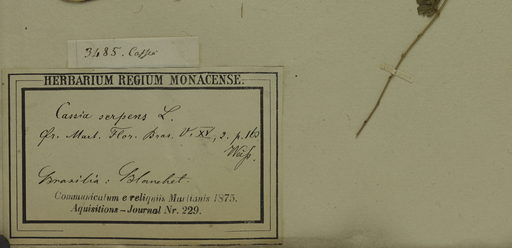 3485. Cassia
HERBARIUM REGIUM MONACENSE.
Cassia serpens L.
Mart. Flor. Bras. V. XV, 2. p. 160
Brasilia: Blanchet.
Communicatum e reliquiis Martianis 1875.
Aquisitions-Journal Nr. 229.